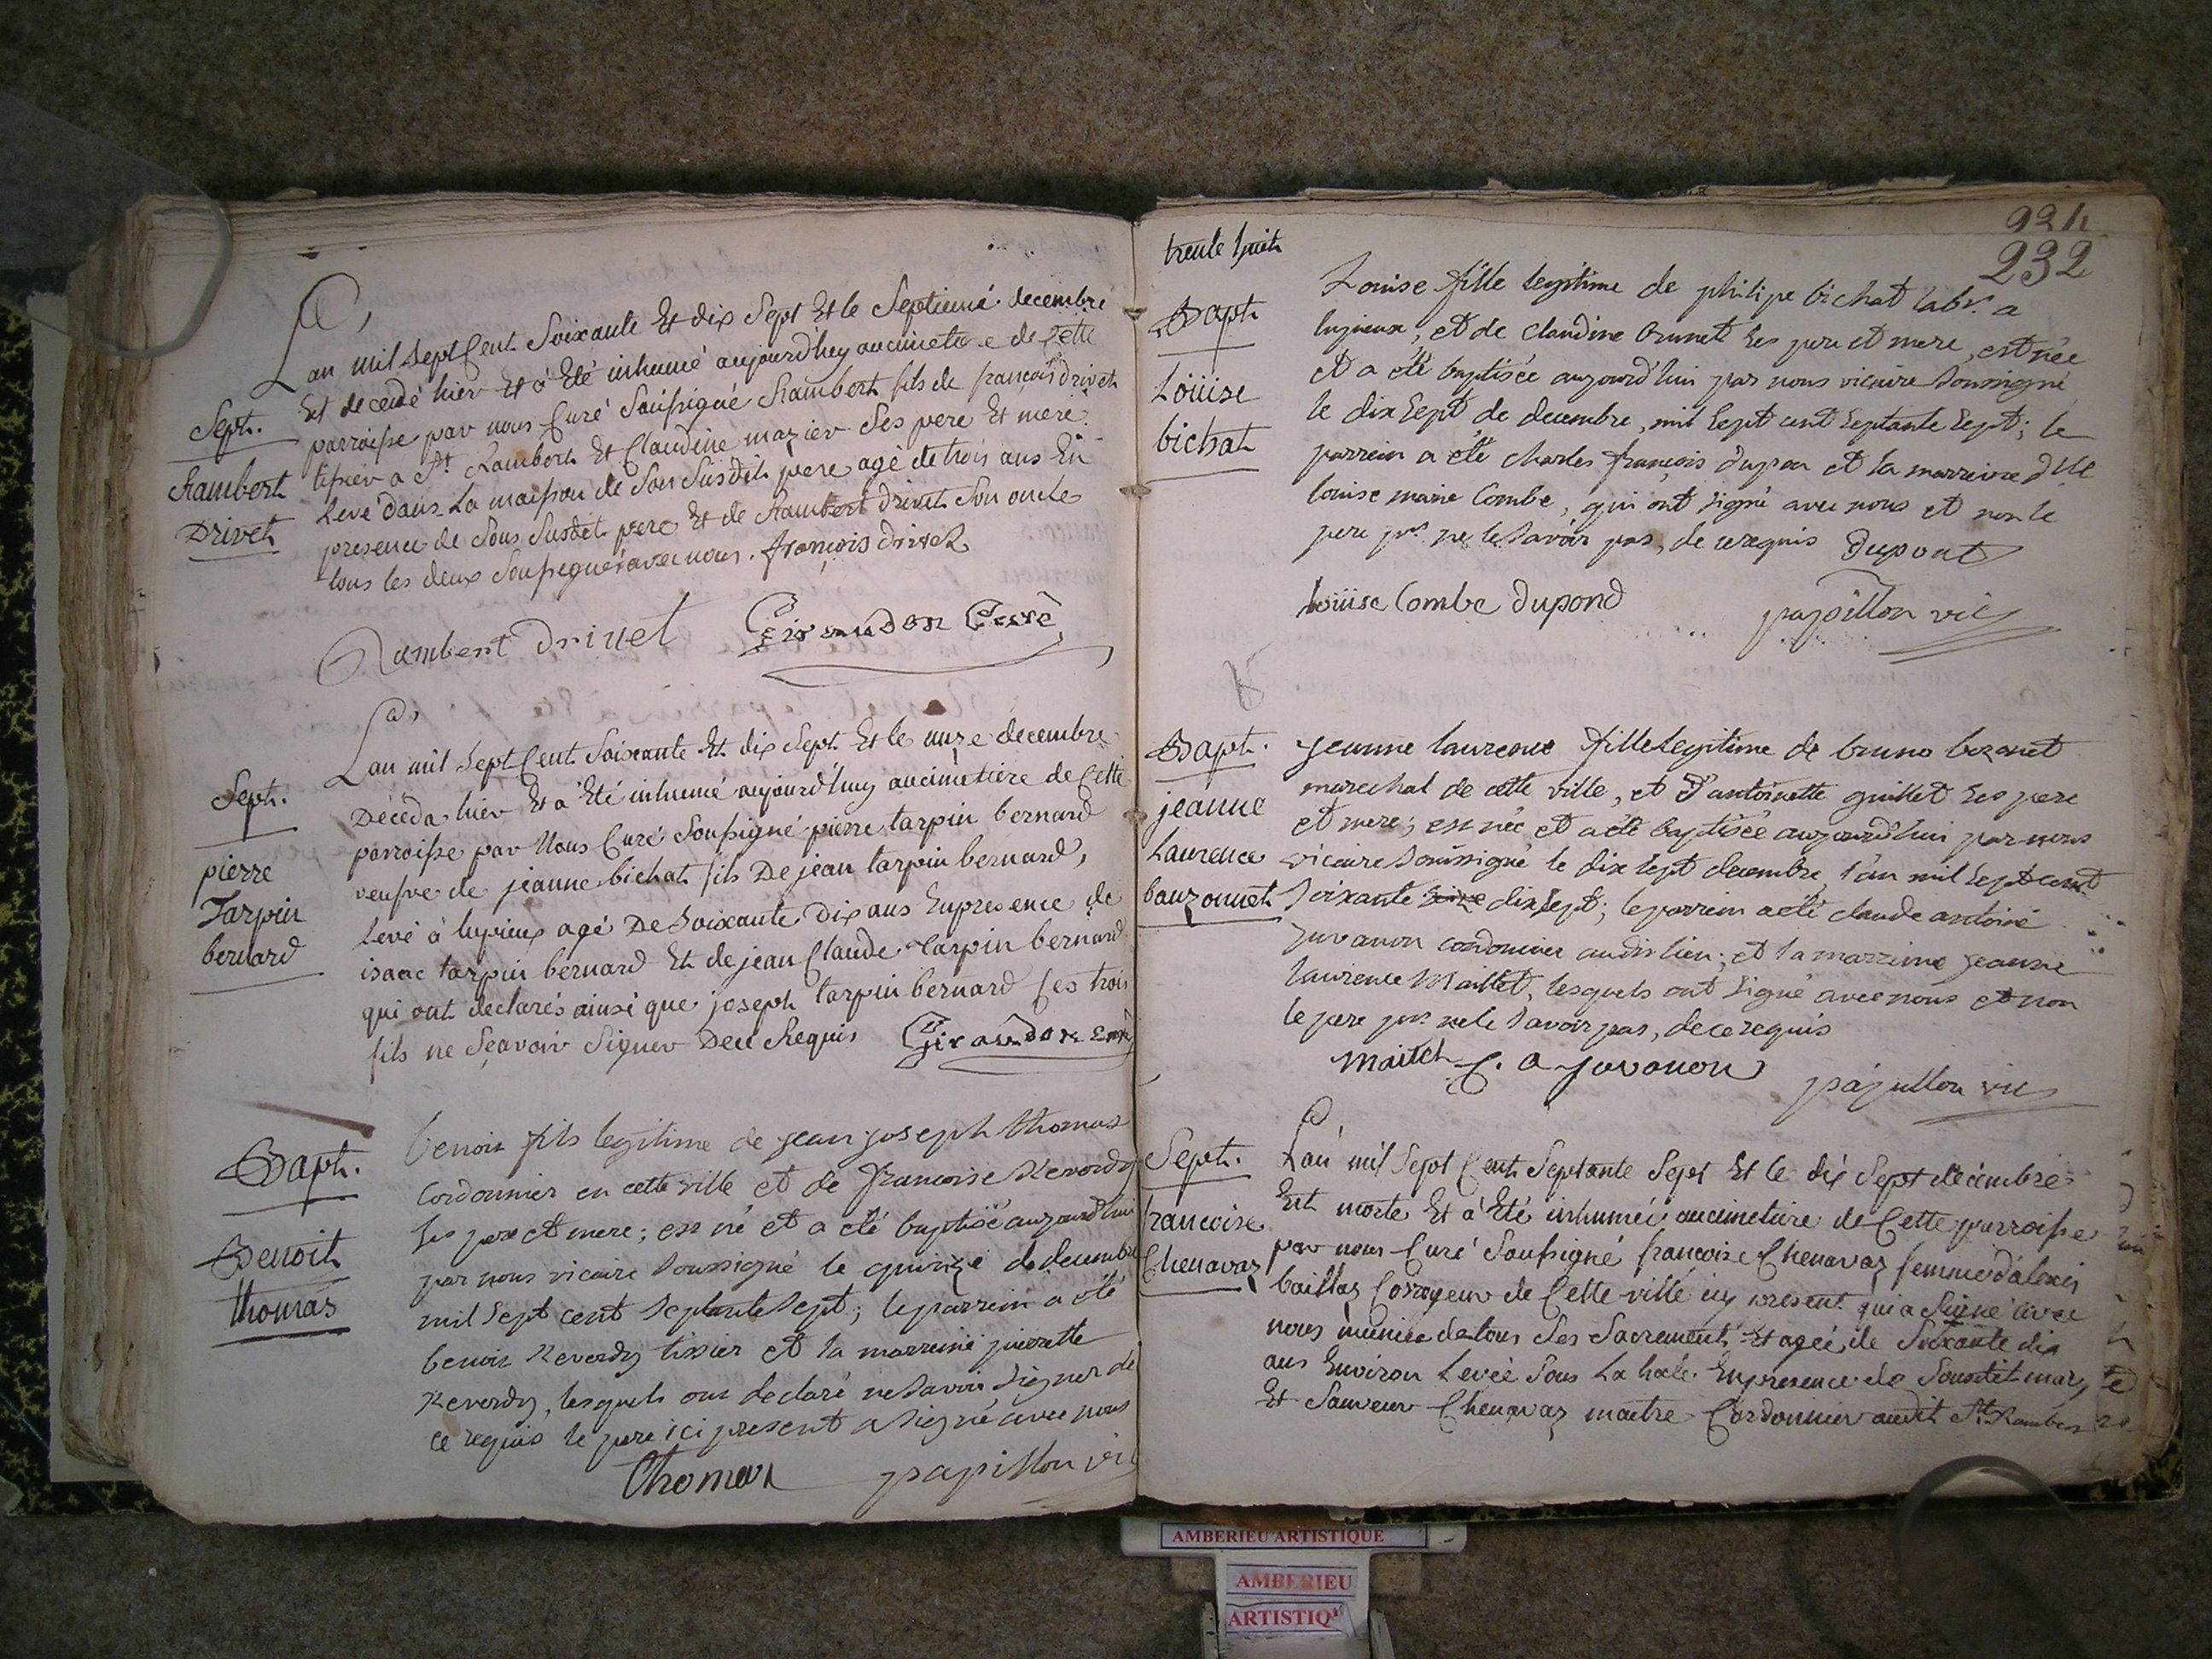 Lan mil sept Cent Soixante Et dix Sept Et le Septieme decembre
Est decedé hier Et a Eté inhumé aujourd'huy au cimetiere de Cette
Sept.
Rambert
Drivet
parroisse par nous Curé Soussigné Rambert fils de françois drivet
tissier a St. Rambert Et Claudine mazier Ses pere Et mere
Levé dans La maison de Son Susdit pere agé de trois ans En
presence de Sous Susdit pere Et de Rambert drivet Son oncle
tous les deux Soussignés avec nous. françois drivet
Rambert Drivet Giraudon Curé
Lan mil Sept Cent Soixante Et dix Sept Et le onze decembre
Sept.
pierre
Tarpin
bernard
Déceda hier Et a Eté inhumé aujourd'huy au cimetiere de Cette
parroisse par Nous Curé Soussigné pierre tarpin bernard
veufve de jeanne bichat fils De jean tarpin bernard,
Levé à lupieux agé De Soixante Dix ans En presence de
isaac tarpin bernard Et de jean Claude tarpin bernard
qui ont declarés ainsi que joseph tarpin bernard ses trois
fils ne Sçavoir Signer De ce Requis Giraudon Curé
Bapt.
Benoit
thomas
benoit fils legitime de jean joseph thomas
Cordonnier en cette ville et de francoise Reverdy
Ses pere et mere; est né et a été baptisé aujourd'hui
par nous vicaire Soussigné le quinze de decembre
mil Sept cent Septante Sept; le parrein a été
benoit Reverdy tissier et la marreine pierrette
Reverdy, lesquels ont declaré ne Savoir Signer de
ce requis le pere ici present a Signé avec nous
Thomas papillon vic
trente huit
232
Bapt
Loüise
bichat
Louise fille legitime de philipe bichat labr. a
lupieux, et de Claudine brunet Ses pere et mere, est née
et a été baptisée aujourd'hui par nous vicaire Soussigné
le dix Sept de decembre, mil Sept cent Septante Sept; le
parrein a été charles françois dupon et la marreine dlle
louise marie Combe, qui ont Signé avec nous et non le
pere pnt ne le Savoir pas, de ce requis Dupont
Loüise Combe Dupond papillon vic
Bapt.
jeanne
Laurence
bouzonnet
jeanne laurence fille legitime de bruno bozonet
marechal de cette ville, et d'antoinette guillet Ses pere
et mere; est née et a été baptisée aujourd'hui par nous
vicaire Soussigné le dix Sept decembre, l'an mil Sept cent
Soixante dix Sept; le parrein a été claude antoine
juvanon cordonnier audit lieu; et la marreine jeanne
laurence Maillet, lesquels ont Signé avec nous et non
le pere pnt ne le Savoir pas, de ce requis
C. a juvanon papillon vic
Sept.
francoise
Chenavaz
Lan mil Sept Cent Septante Sept Et le dix Sept decembre
Est morte Et a Eté inhumée au cimetiere de Cette parroisse
par nous Curé Soussigné francoise Chenavaz femme d'alexis
baillaz Corroyeur de Cette ville icy present qui a Signé avec
nous munie de tous Ses Sacrements Et agée de Soixante dix
ans Environ Levée Sous La hale En presence de Sousdit mary
Et Sauveur Chenavaz maitre Cordonnier audit St. Rambert
AMBERIEU ARTISTIQUE
AMBERIEU
ARTISTIQ